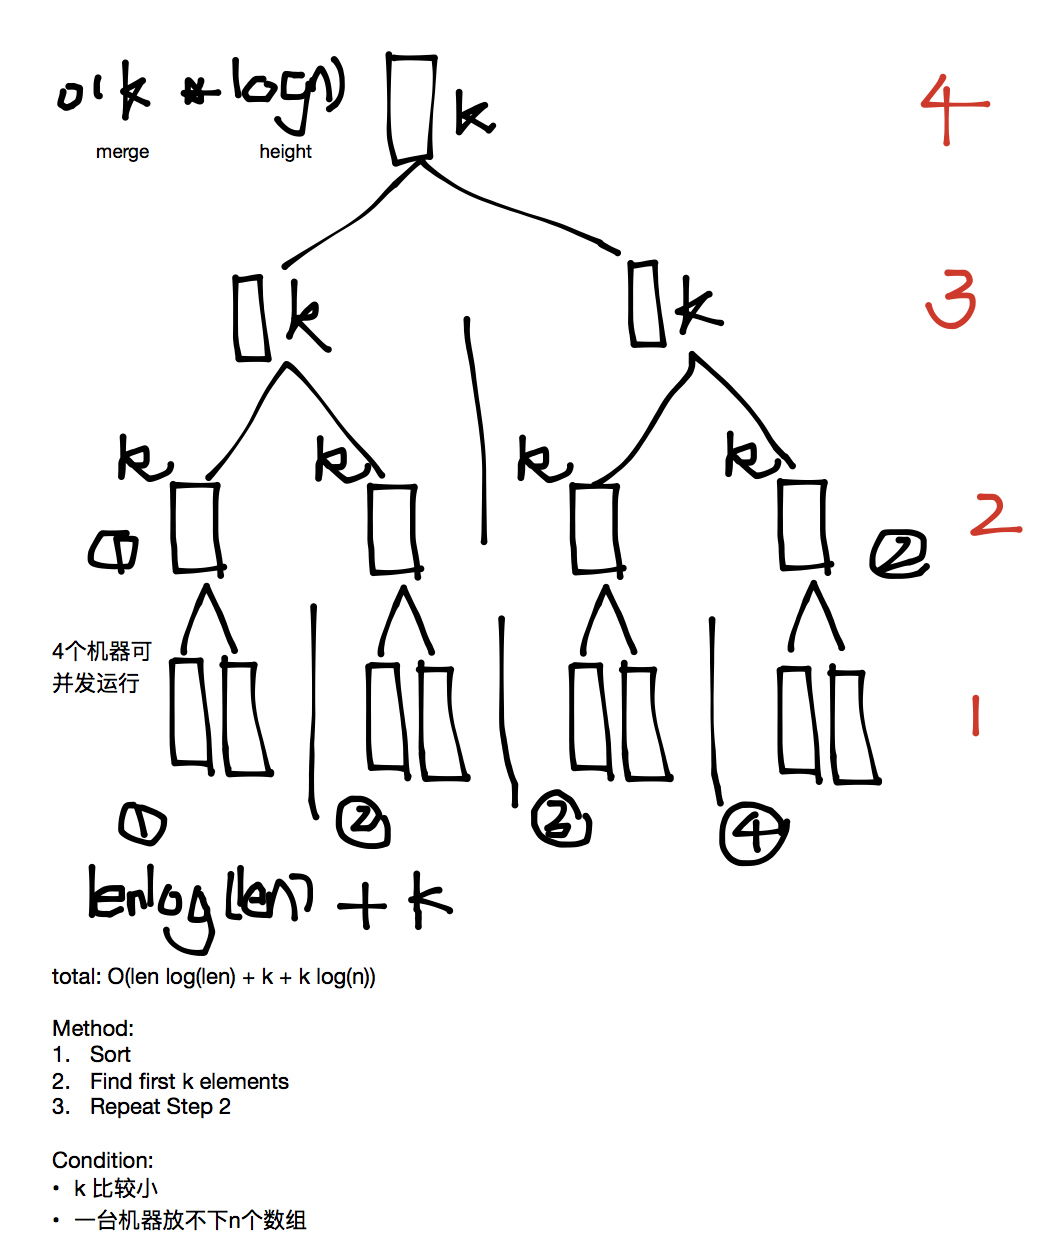 o(k * logn)
k
4
merge
height
k
k
3
k
k
k
k
2
①
②
4个机器可
并发运行
1
①
②
③
④
lenlog(len) + k
total: O(len log(len) + k + k log(n))
Method:
1. Sort
2. Find first k elements
3. Repeat Step 2
Condition:
• k 比较小
• 一台机器放不下n个数组